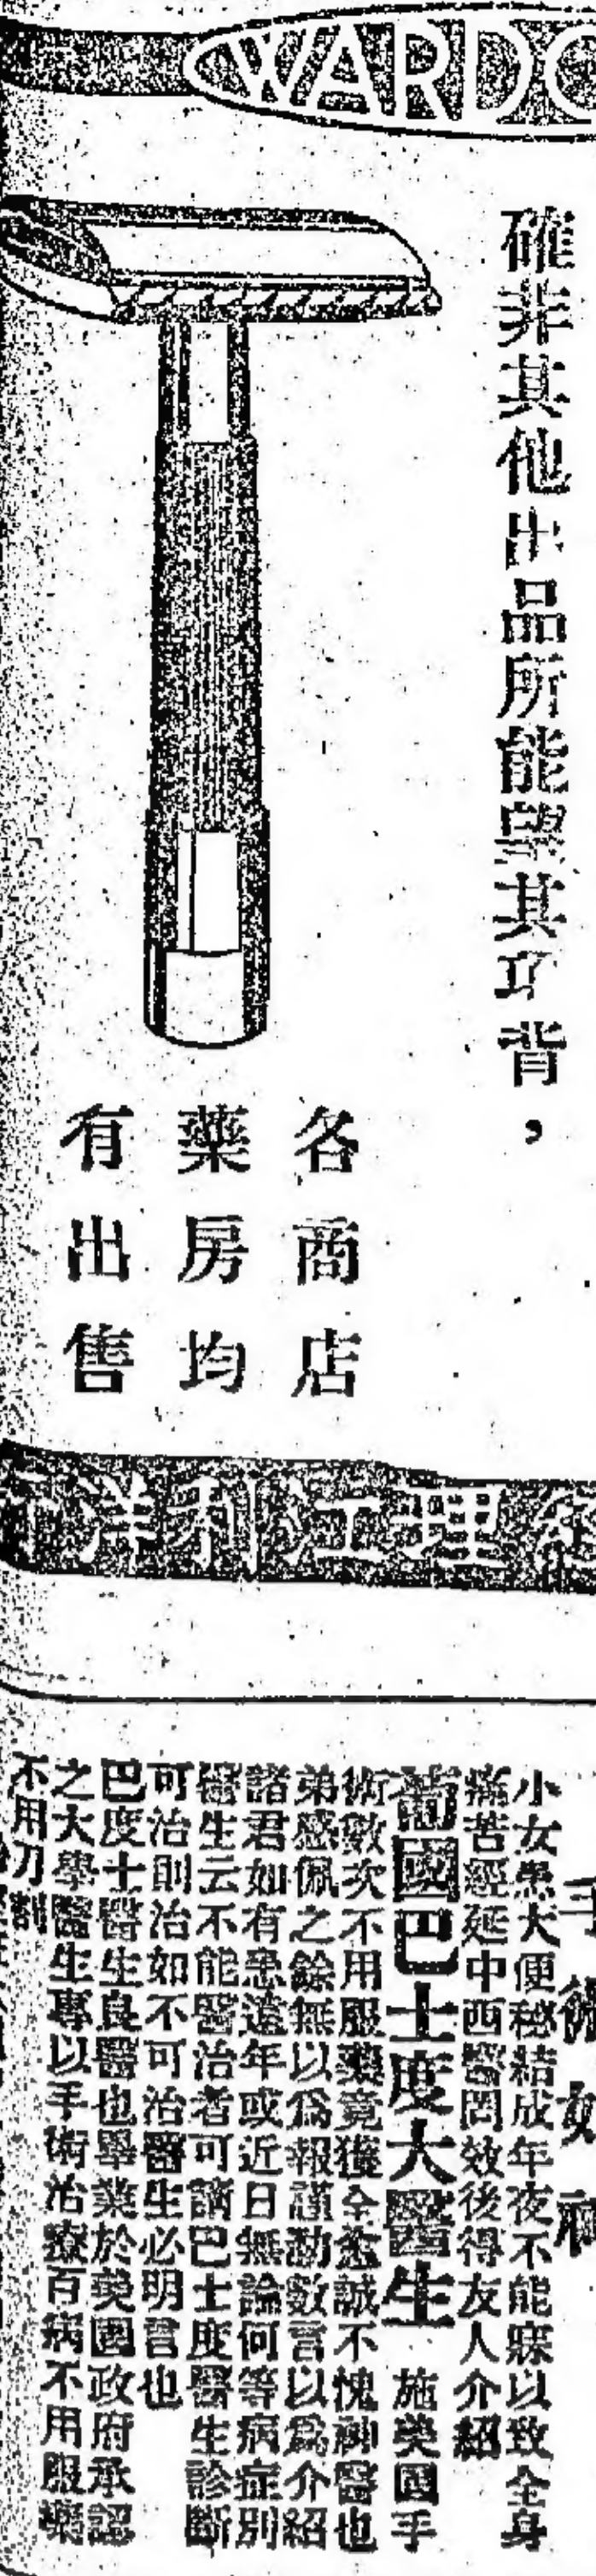 WARDO
確非其他出品所能望其項背，
各商店
藥房均
有出售
經理正利洋行
手術如神
小女患大便秘結成年夜不能寐以致全身
痛苦經延中西醫罔效後得友人介紹
葡國巴士度大醫生 施美國手
術數次不用服藥竟獲全愈誠不愧神醫也
弟感佩之餘無以為報謹勸數言以為介紹
諸君如有患遠年或近日無論何等病症別
醫生云不能醫治者可請巴士度醫生診斷
可治則治如不可治醫生必明言也
巴度士醫生良醫也畢業於美國政府承認
之大學醫生專以手術治療百病不用服藥
不用刀割